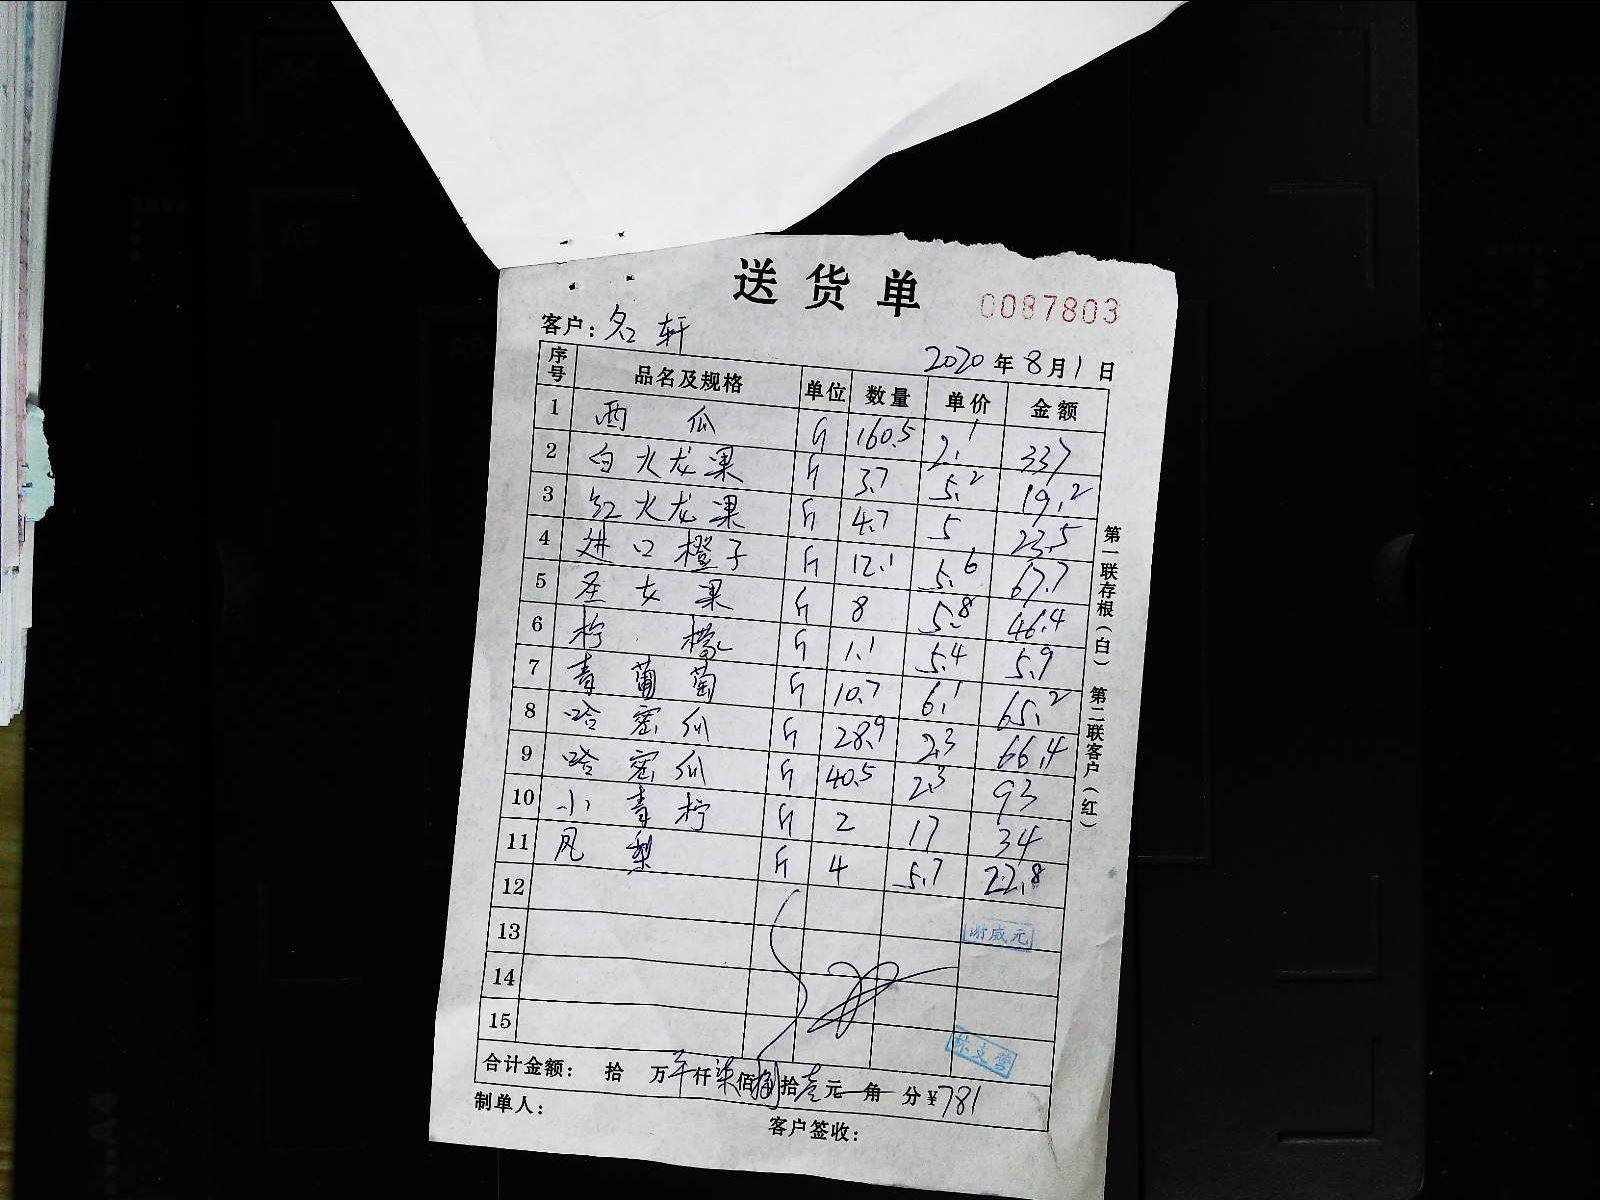 送货单 0087803
客户：名轩
2020年8月1日
序号 品名及规格 单位 数量 单价 金额
1 西瓜 斤 160.5 2.1 337
2 白火龙果 斤 3.7 5.2 19.2
3 红火龙果 斤 4.7 5 23.5
4 进口橙子 斤 12.1 5.6 67.7
5 圣女果 斤 8 5.8 46.4
6 柠檬 斤 1.1 5.4 5.9
7 青葡萄 斤 10.7 6.1 65.2
8 哈密瓜 斤 28.9 2.3 66.4
9 哈密瓜 斤 40.5 2.3 93
10 小青柠 斤 2 17 34
11 凤梨 斤 4 5.7 22.8
12
13
14
15
合计金额： 拾 万 仟柒佰捌拾壹元 角 分￥781
制单人：
客户签收：
第一联存根（白） 第二联客户（红）